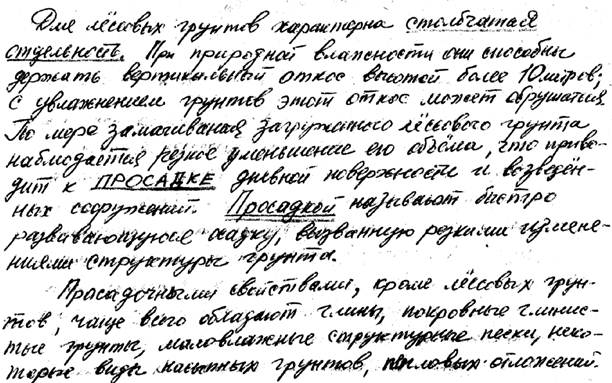 Для лёссовых грунтов характерна столбчатая
отдельность. При природной влажности они способны
держать вертикальный откос высотой более 10 метров;
с увлажнением грунтов этот откос может обрушатся
По мере замачивания загруженного лёссового грунта
наблюдается резкое уменьшение его объема, что приво-
дит к ПРОСАДКЕ дневной поверхности и возведён-
ных сооружений. Просадкой называют быстро
развивающуюся осадку, вызванную резкими измене-
ниями структуры грунта.
Просадочными свойствами, кроме лёссовых грун-
тов, чаще всего обладают глины, покровные глинис-
тые грунты, маловлажные структурные пески, неко-
торые виды насыпных грунтов, пепловых отложений.